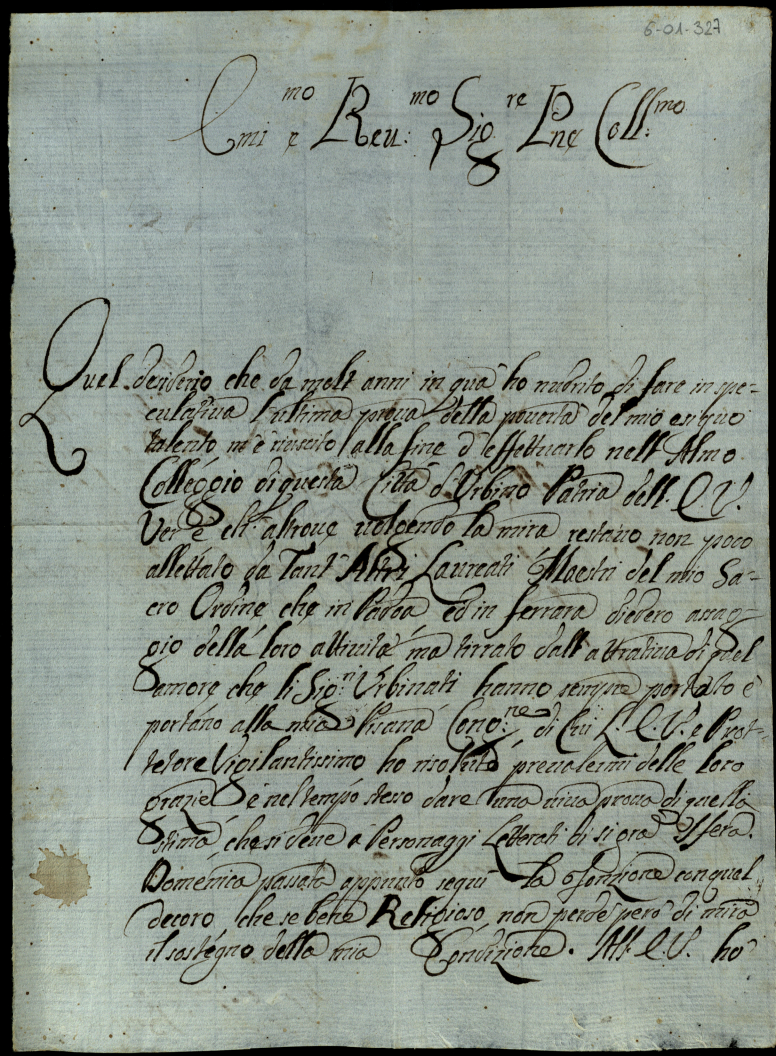 6-01-327
Emi:mo e Reu:mo Sig:re Pne Coll:mo
Quel desiderio che da molt'anni in quà ho nudrito di fare in spe-
culativa l'ultima prova della povertà del mio esiguo
talento m'è riuscito alla fine d'effettuarlo nell'Almo
Colleggio di questa Città d'Urbino Patria dell'E.V.
Ver'è ch'altrove volgendo la mira restavo non poco
allettato da Tant'Altri Laureati Maestri del mio Sa-
cro Ordine che in Padoa ed in ferrara diedero assag-
gio della loro attività ma tirrato dall'attrativa di quel
amore che li Sig:ri Urbinati hanno sempre portato e
portano alla mia Pisana Cong:ne di Cui L'E.V. e Prot-
tetore Vigilantissimo ho risoluto prevalermi delle loro
grazie e nel tempo stesso dare una viva prova di quella
stima che si deve a Personaggi Letterati di sì gran sfera.
Domenica passata appunto seguì la fonzione con quel
decoro che se bene Religioso non perde però di mira
il sostegno della mia Condizione. All'E.V. ho